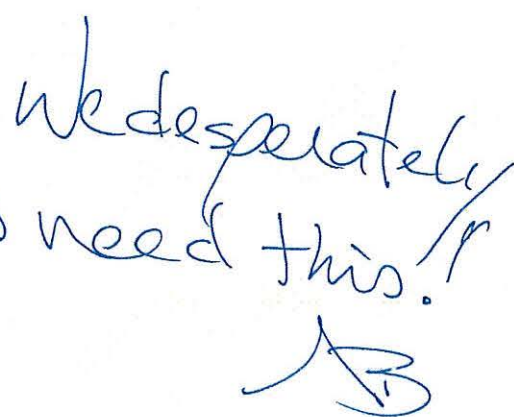 We desperately
need this!
AB